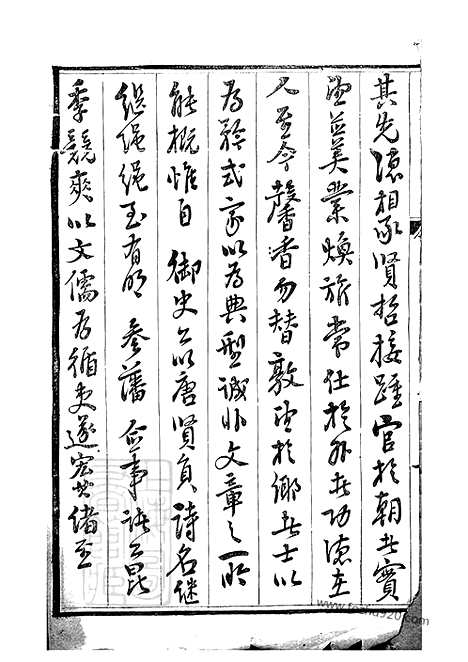 其先德相承賢哲接踵官於朝者實
望益美業煥旂常仕於外者功德在
人至今馨香勿替敦望於鄉者士以
為矜式家以為典型誠非文章之一時
能概惟自 御史公以唐賢負詩名繼
繼繩繩至有明 參藩 僉事諸公昆
季競爽以文儒為循吏遂宏其緒至
www.fosha920.com